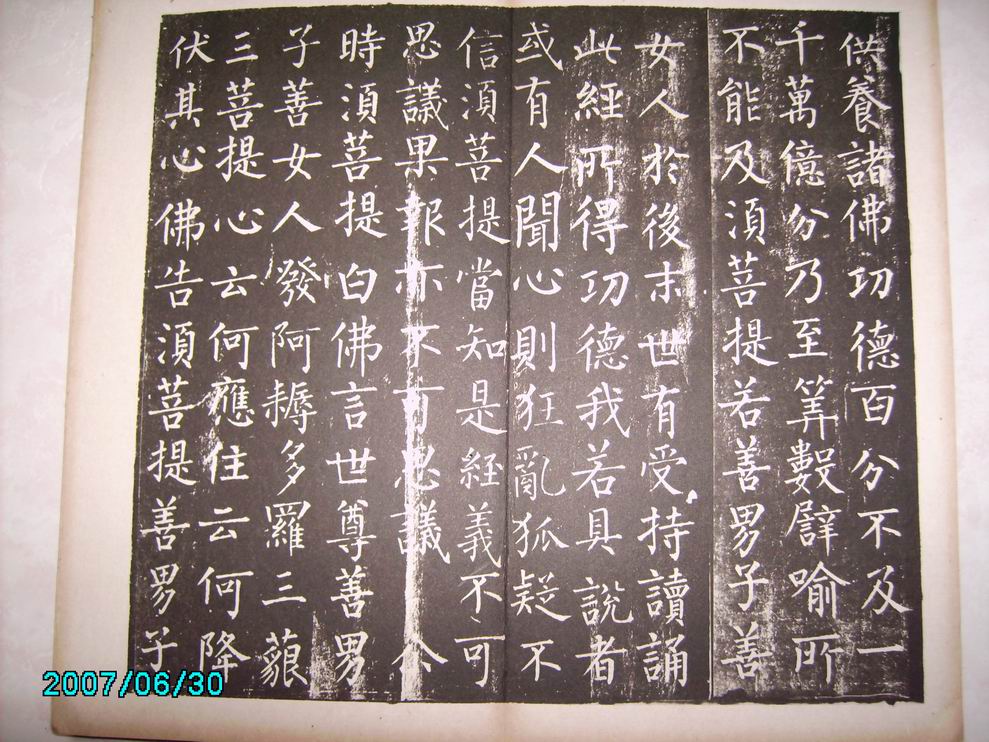 供養諸佛功德百分不及一
千萬億分乃至筭數譬喻所
不能及須菩提若善男子善
女人於後末世有受持讀誦
此經所得功德我若具說者
或有人聞心則狂亂狐疑不
信須菩提當知是經義不可
思議果報亦不可思議尒
時須菩提白佛言世尊善男
子善女人發阿耨多羅三藐
三菩提心云何應住云何降
伏其心佛告須菩提善男子
2007/06/30